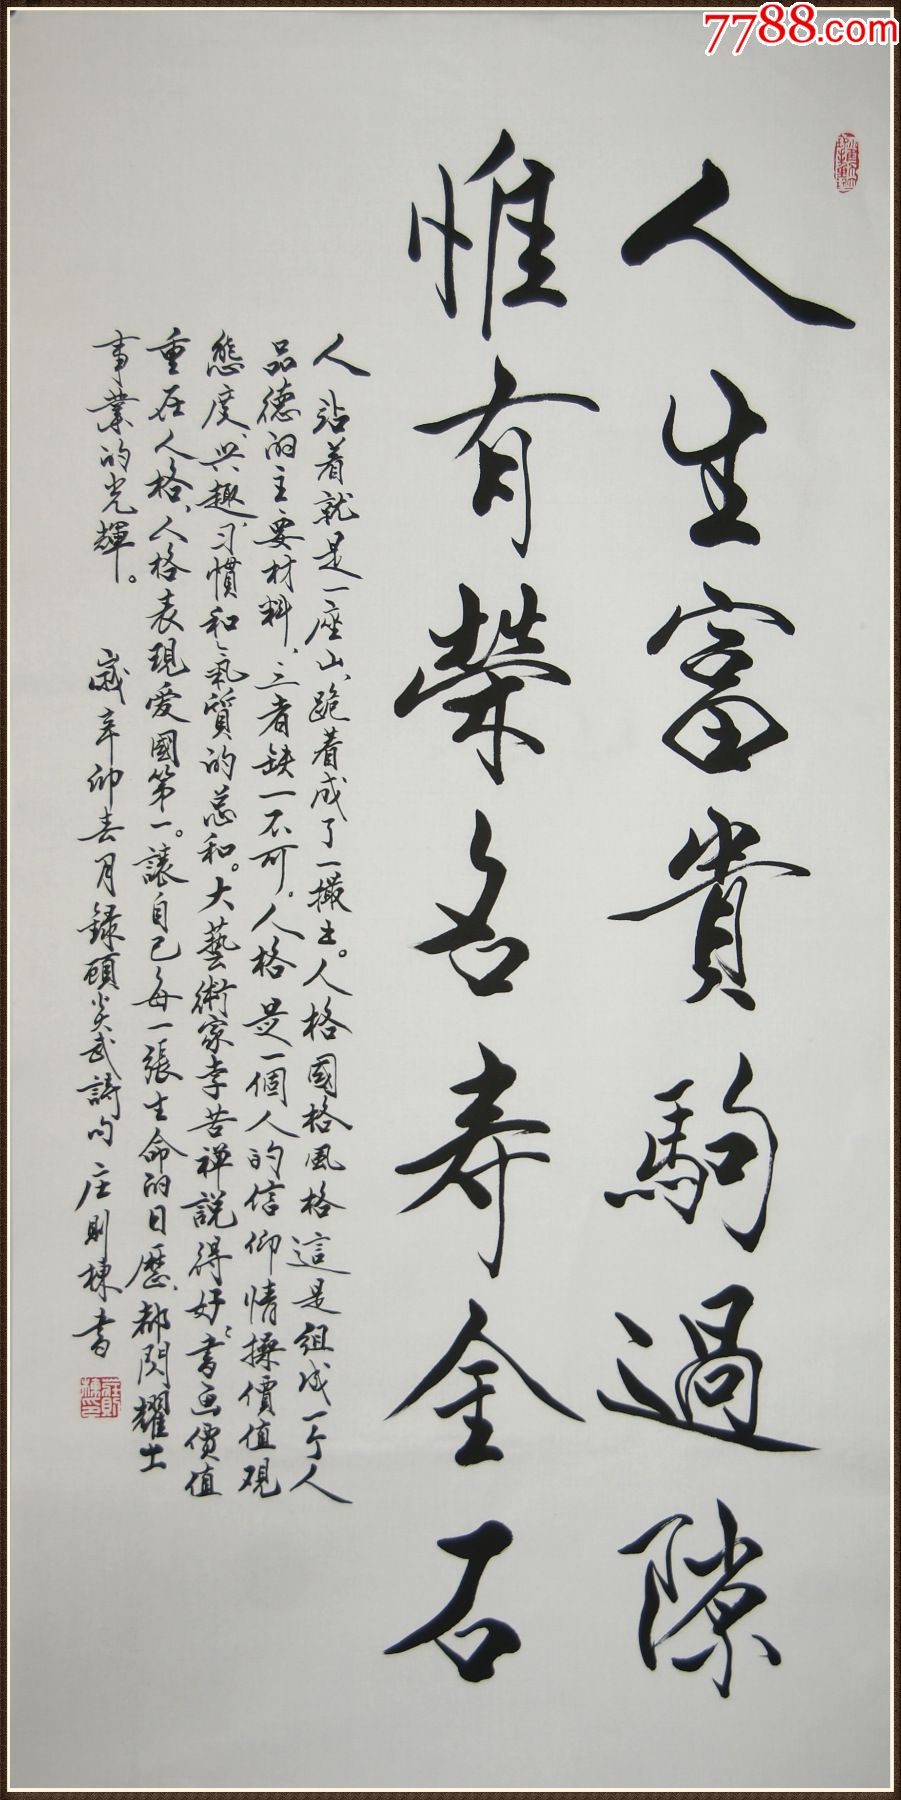 7788.com
人生富貴駒過隙
惟有榮名寿金石
人站着就是一座山、跪着成了一撮土。人格國格風格這是組成一个人
品德的主要材料、三者缺一不可。人格是一個人的信仰情操價值观
態度、兴趣、习慣和氣質的总和。大藝術家李苦禅説得好：書画價值
重在人格、人格表現爱國第一。讓自己每一張生命的日歷、都閃耀出
事業的光輝。 歲辛卯春月録顧炎武詩句 庄则棟書